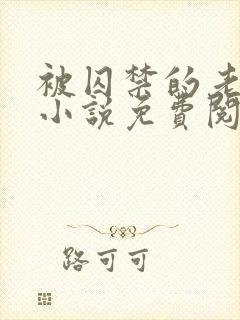 被囚禁的老
小说免費閱
路可可